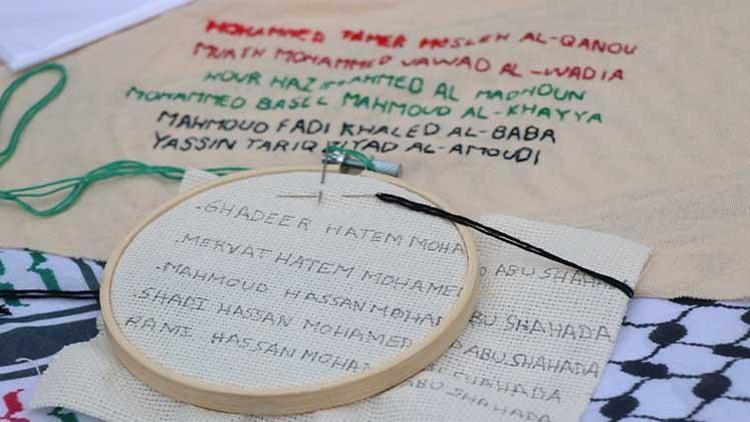 MOHAMMED TAMER MOSLEH AL-QANOU
MUATH MOHAMMED JAWAD AL-WADIA
NOUR HAZIM AHMED AL MADHOUN
MOHAMMED BASEL MAHMOUD AL-KHAYYA
MAHMOUD FADI KHALED AL-BABA
YASSIN TARIQ ZIYAD AL-AMOUDI
.GHADEER HATEM MOHA D ABU SHAHADA
.MERVAT HATEM MOHAMED ABU SHAHADA
.MAHMOUD HASSAN MOHAM ABU SHAHADA
.SHADI HASSAN MOHAMED ABU SHAHADA
RAMI HASSAN MOHAM SHAHADA
SHAHADA